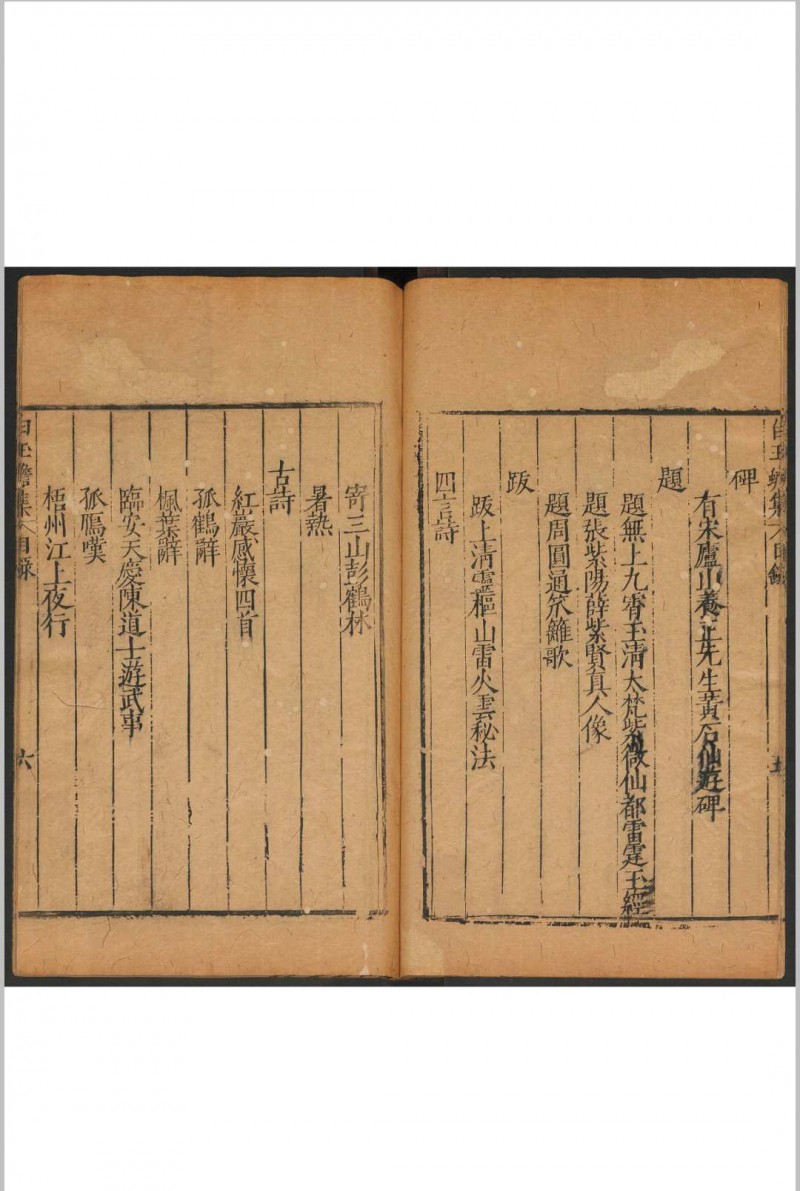 碑
有宋廬山養正先生黃石仙遊碑
題
題無上九霄玉清大梵紫微仙都雷霆玉經
題張紫陽薛紫賢真人像
題周圓通笊籬歌
跋
跋上清靈樞山雷火雲秘法
四言詩
寄三山彭鶴林
暑熱
古詩
紅巖感懷四首
孤鶴辭
楓葉辭
臨安天慶陳道士遊武事
孤鴈嘆
梧州江上夜行
白玉蟾集 目錄
六